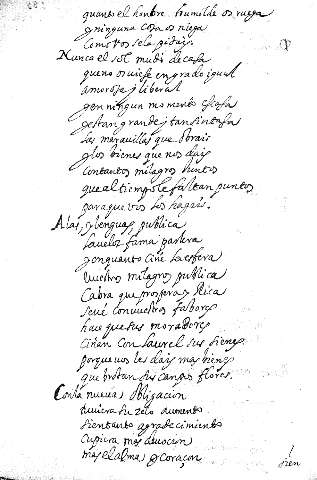 quanto el hombre humilde os ruega
y ninguna cosa os niega
como vos se la pidais
Nunca el sol mudó de casa
que no os viese en grado igual
amorosa y liberal
y en ningun momento escasa
y estan grande y tan sin tasa
las meravillas que obrais
y los bienes que nos dais
con tantos milagros juntos
que al tiempo le faltan puntos
para que vos los hagais.
Alas, y lenguas publica
la veloz fama parlera
y en quanto ciñe la esfera
vuestros milagros publica
Cabra que prospera y Rica
se vé con vuestros fabores
hace que sus moradores
ciñan con laurel sus sienes
porque vos les dais mas bienes
que brotan sus campos flores.
Con la nueva obligacion
tuviera su zelo aumento
si en tanto agradecimiento
cupiera mas devocion
mas el alma y coraçon
sien